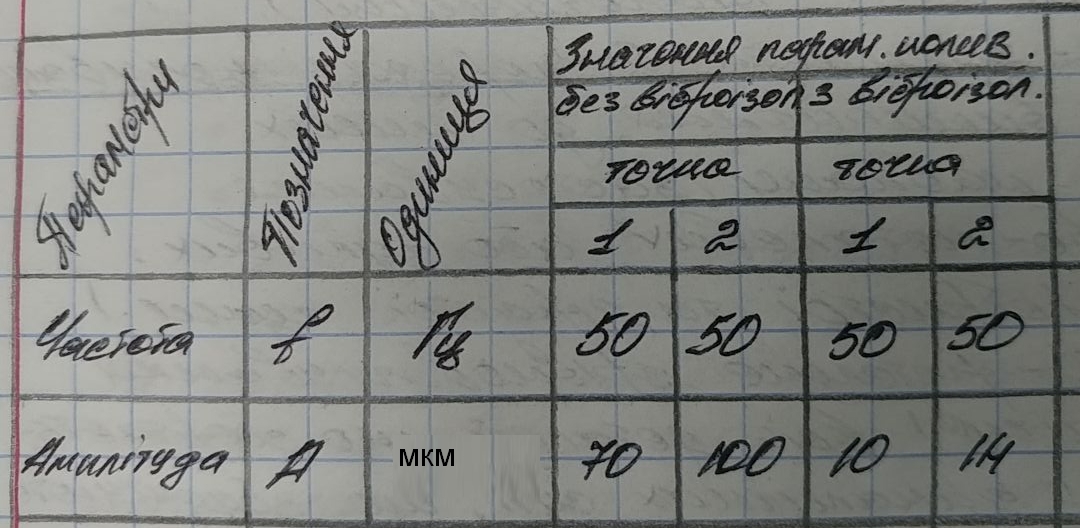 Параметри
Позначення
Одиниця
Значення парам. колив.
без віброізол з віброізол.
точка точка
1 2 1 2
Частота f Гц 50 50 50 50
Амплітуда A мкм 70 100 10 14